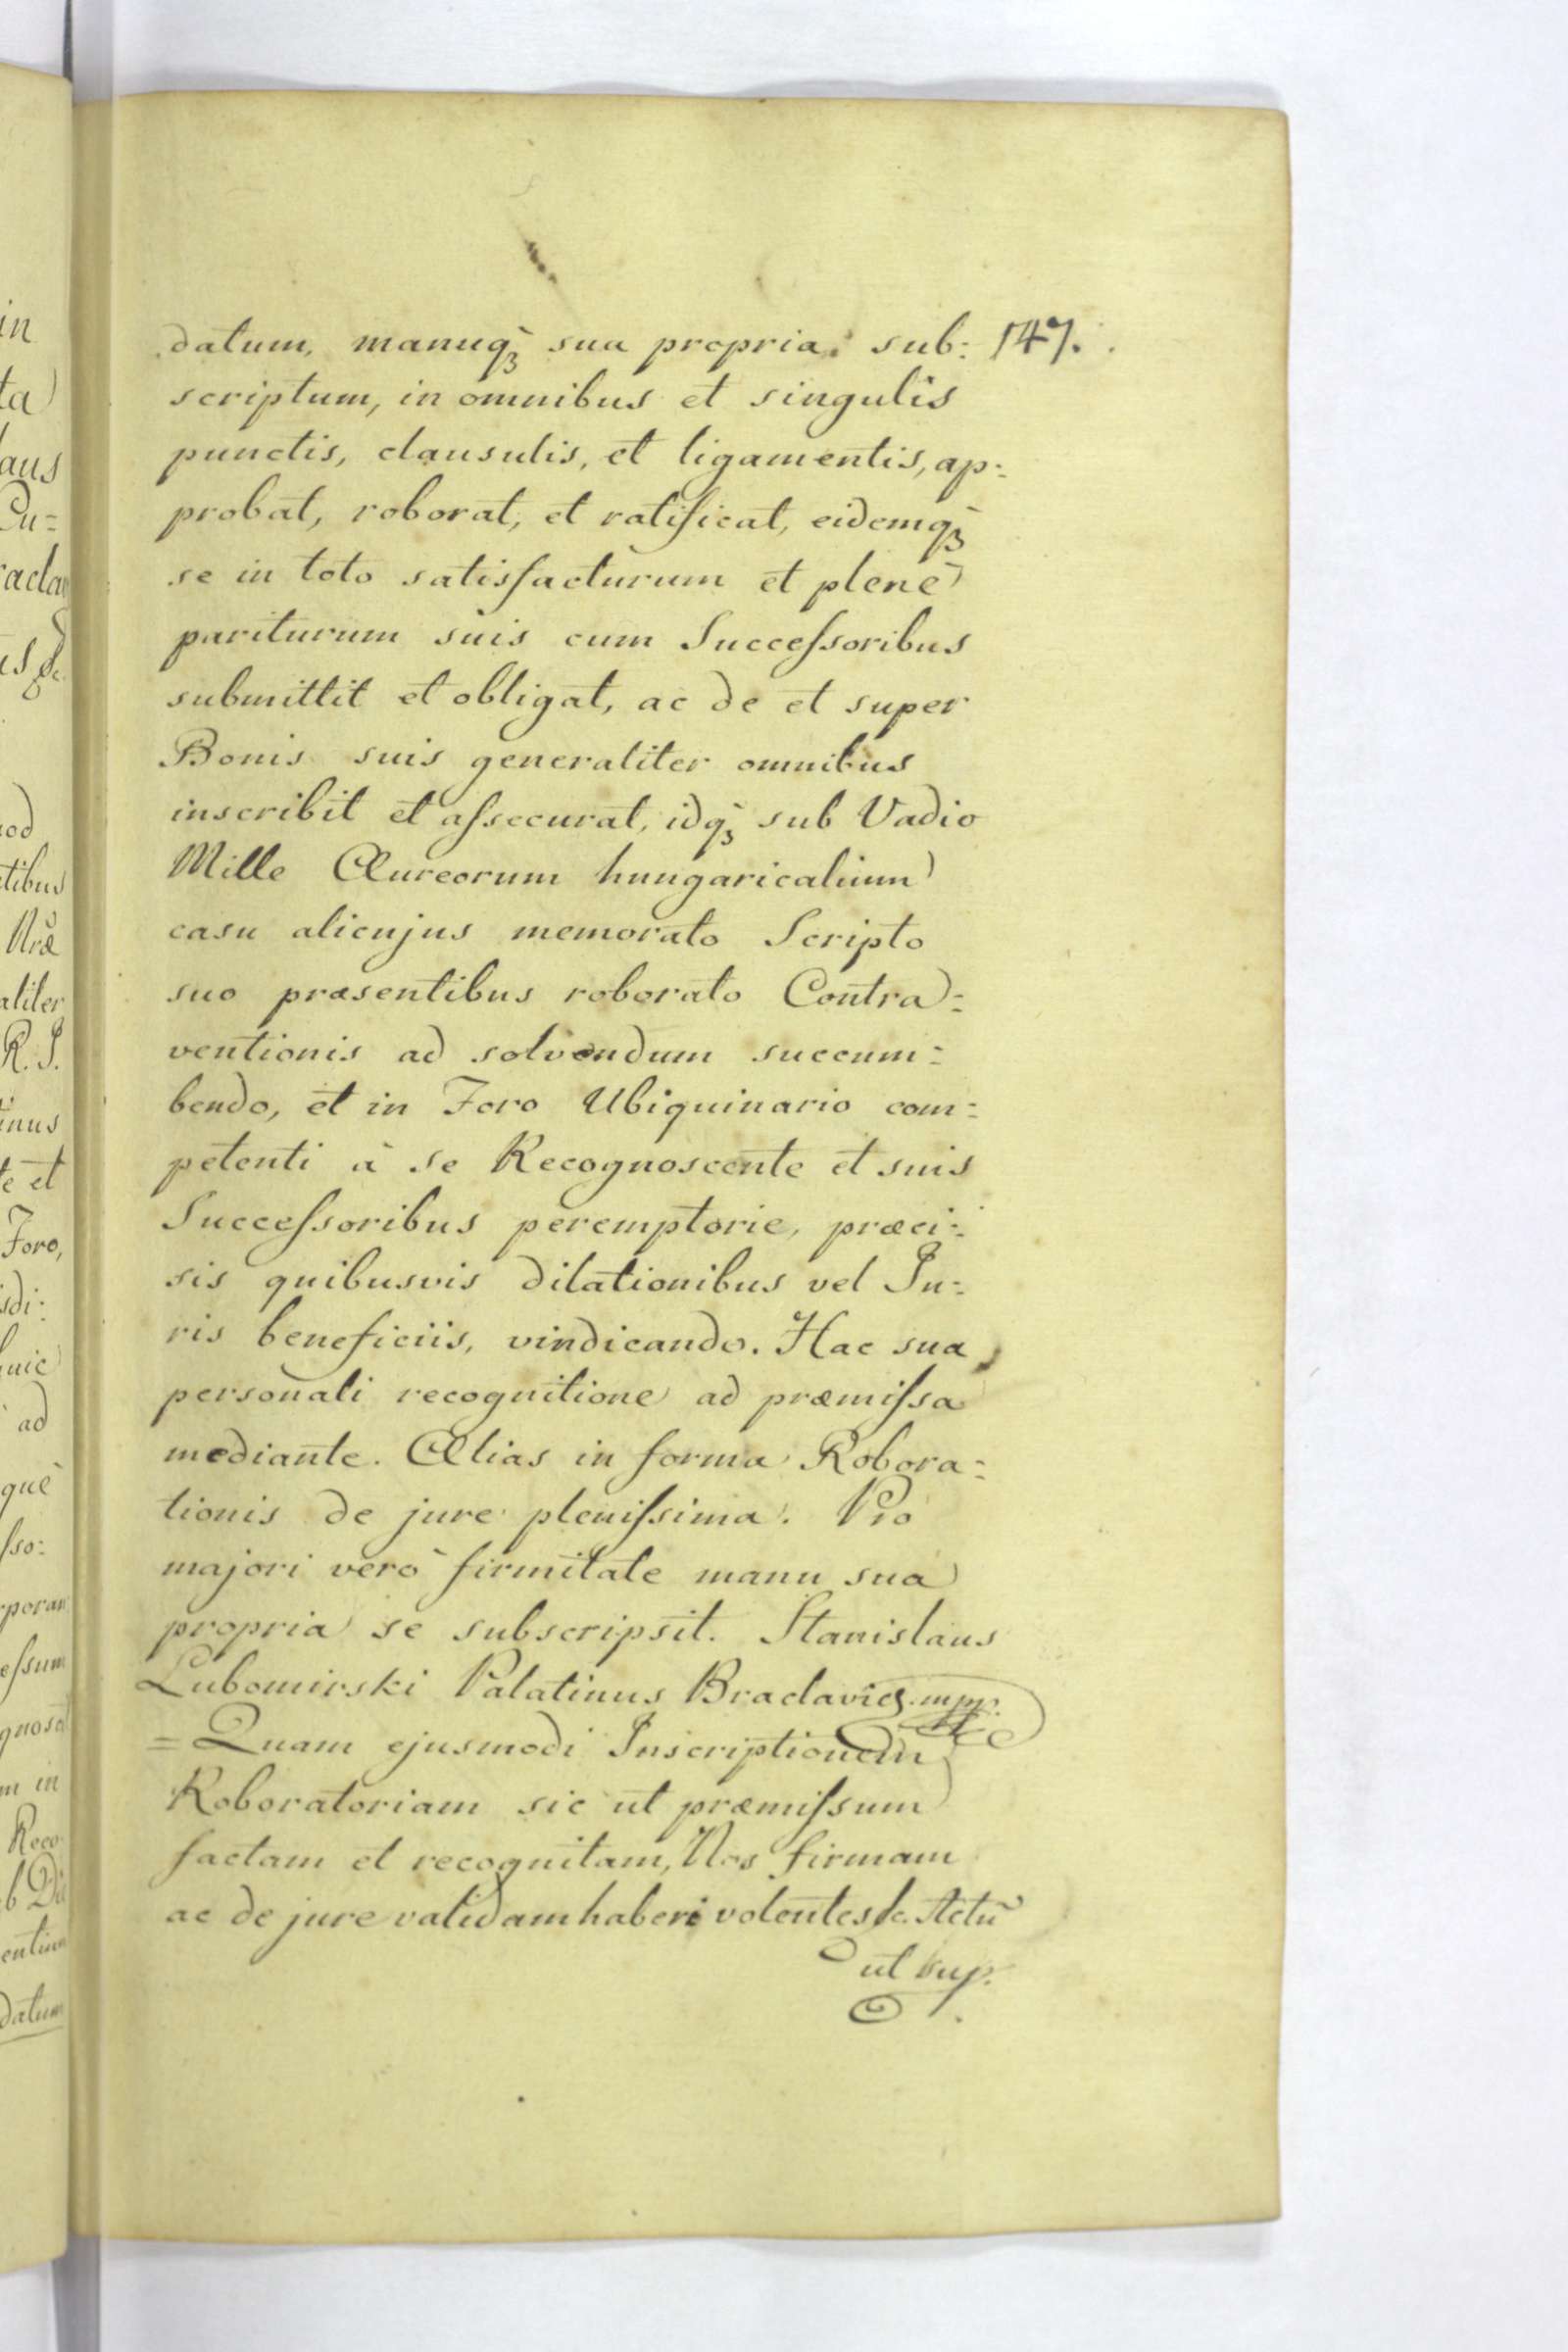 datum, manuq̀ꝫ sua propria sub: 147.
scriptum, in omnibus et singulis
punctis, clausulis, et ligamentis, ap:
probat, roborat, et ratificat, eidemq̀ꝫ
se in toto satisfacturum et plenè
pariturum suis cum Succeſsoribus
submittit et obligat, ac de et super
Bonis suis generaliter omnibus
inscribit et aſsecurat, idq̀ꝫ sub Vadio
Mille Aureorum hungaricalium
casu alicujus memorato Scripto
suo præsentibus roborato Contra=
ventionis ad solvendum succum=
bendo, et in Foro Ubiquinario com=
petenti à se Recognoscente et suis
Succeſsoribus peremptorie, præci:
sis quibusvis dilationibus vel Ju=
ris beneficiis, vindicando. Hac sua
personali recognitione ad præmiſsa
mediante. Alias in forma Robora=
tionis de jure pleniſsima. Pro
majori verò firmitate manu sua
propria se subscripsit. Stanislaus
Lubomirski Palatinus Braclavięs. mpp.
= Quam ejusmodi Inscriptionem
Roboratoriam sic ut præmiſsum
factam et recognitam, Nos firmam
ac de jure validam haberi volentes &c. Actũ
ut sup.
in
ta
laus
Du=
aclav
is &c.
od
tibus
Nræ
aliter
R. J.
inus
te et
Foro,
isdi:
huic
ad
què
ſso:
rporan
eſsum
gnosc
m in
Reco
b Di
entium
datum